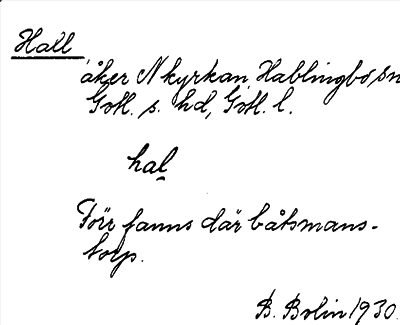 Hall
åker N kyrkan Hablingbo, sn
Gotl. s. hd, Gotl. l.
hal
Förr fanns där båtsmans-
torp.
B. Bolin 1930.